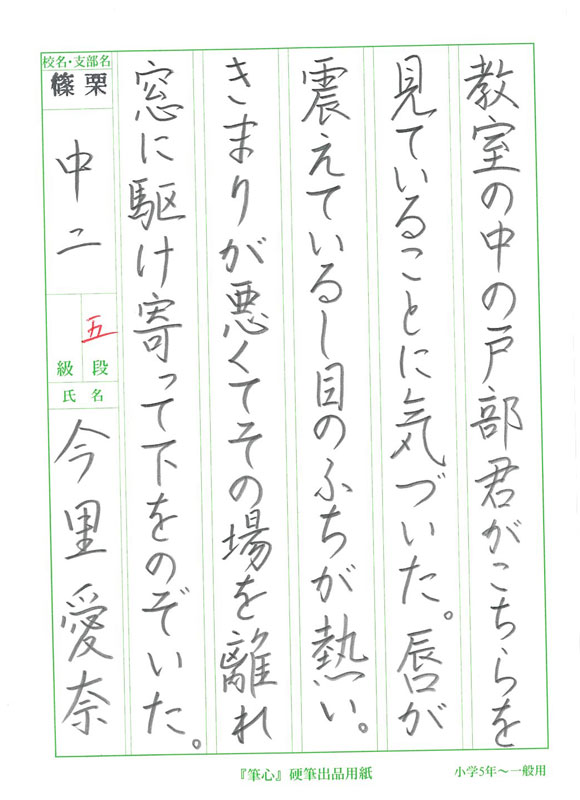 教室の中の戸部君がこちらを
見ていることに気づいた。唇が
震えているし目のふちが熱い。
きまりが悪くてその場を離れ
窓に駆け寄って下をのぞいた。
校名・支部名
篠栗
中二
五
級 段
氏 名
今里愛奈
『筆心』硬筆出品用紙
小学5年～一般用